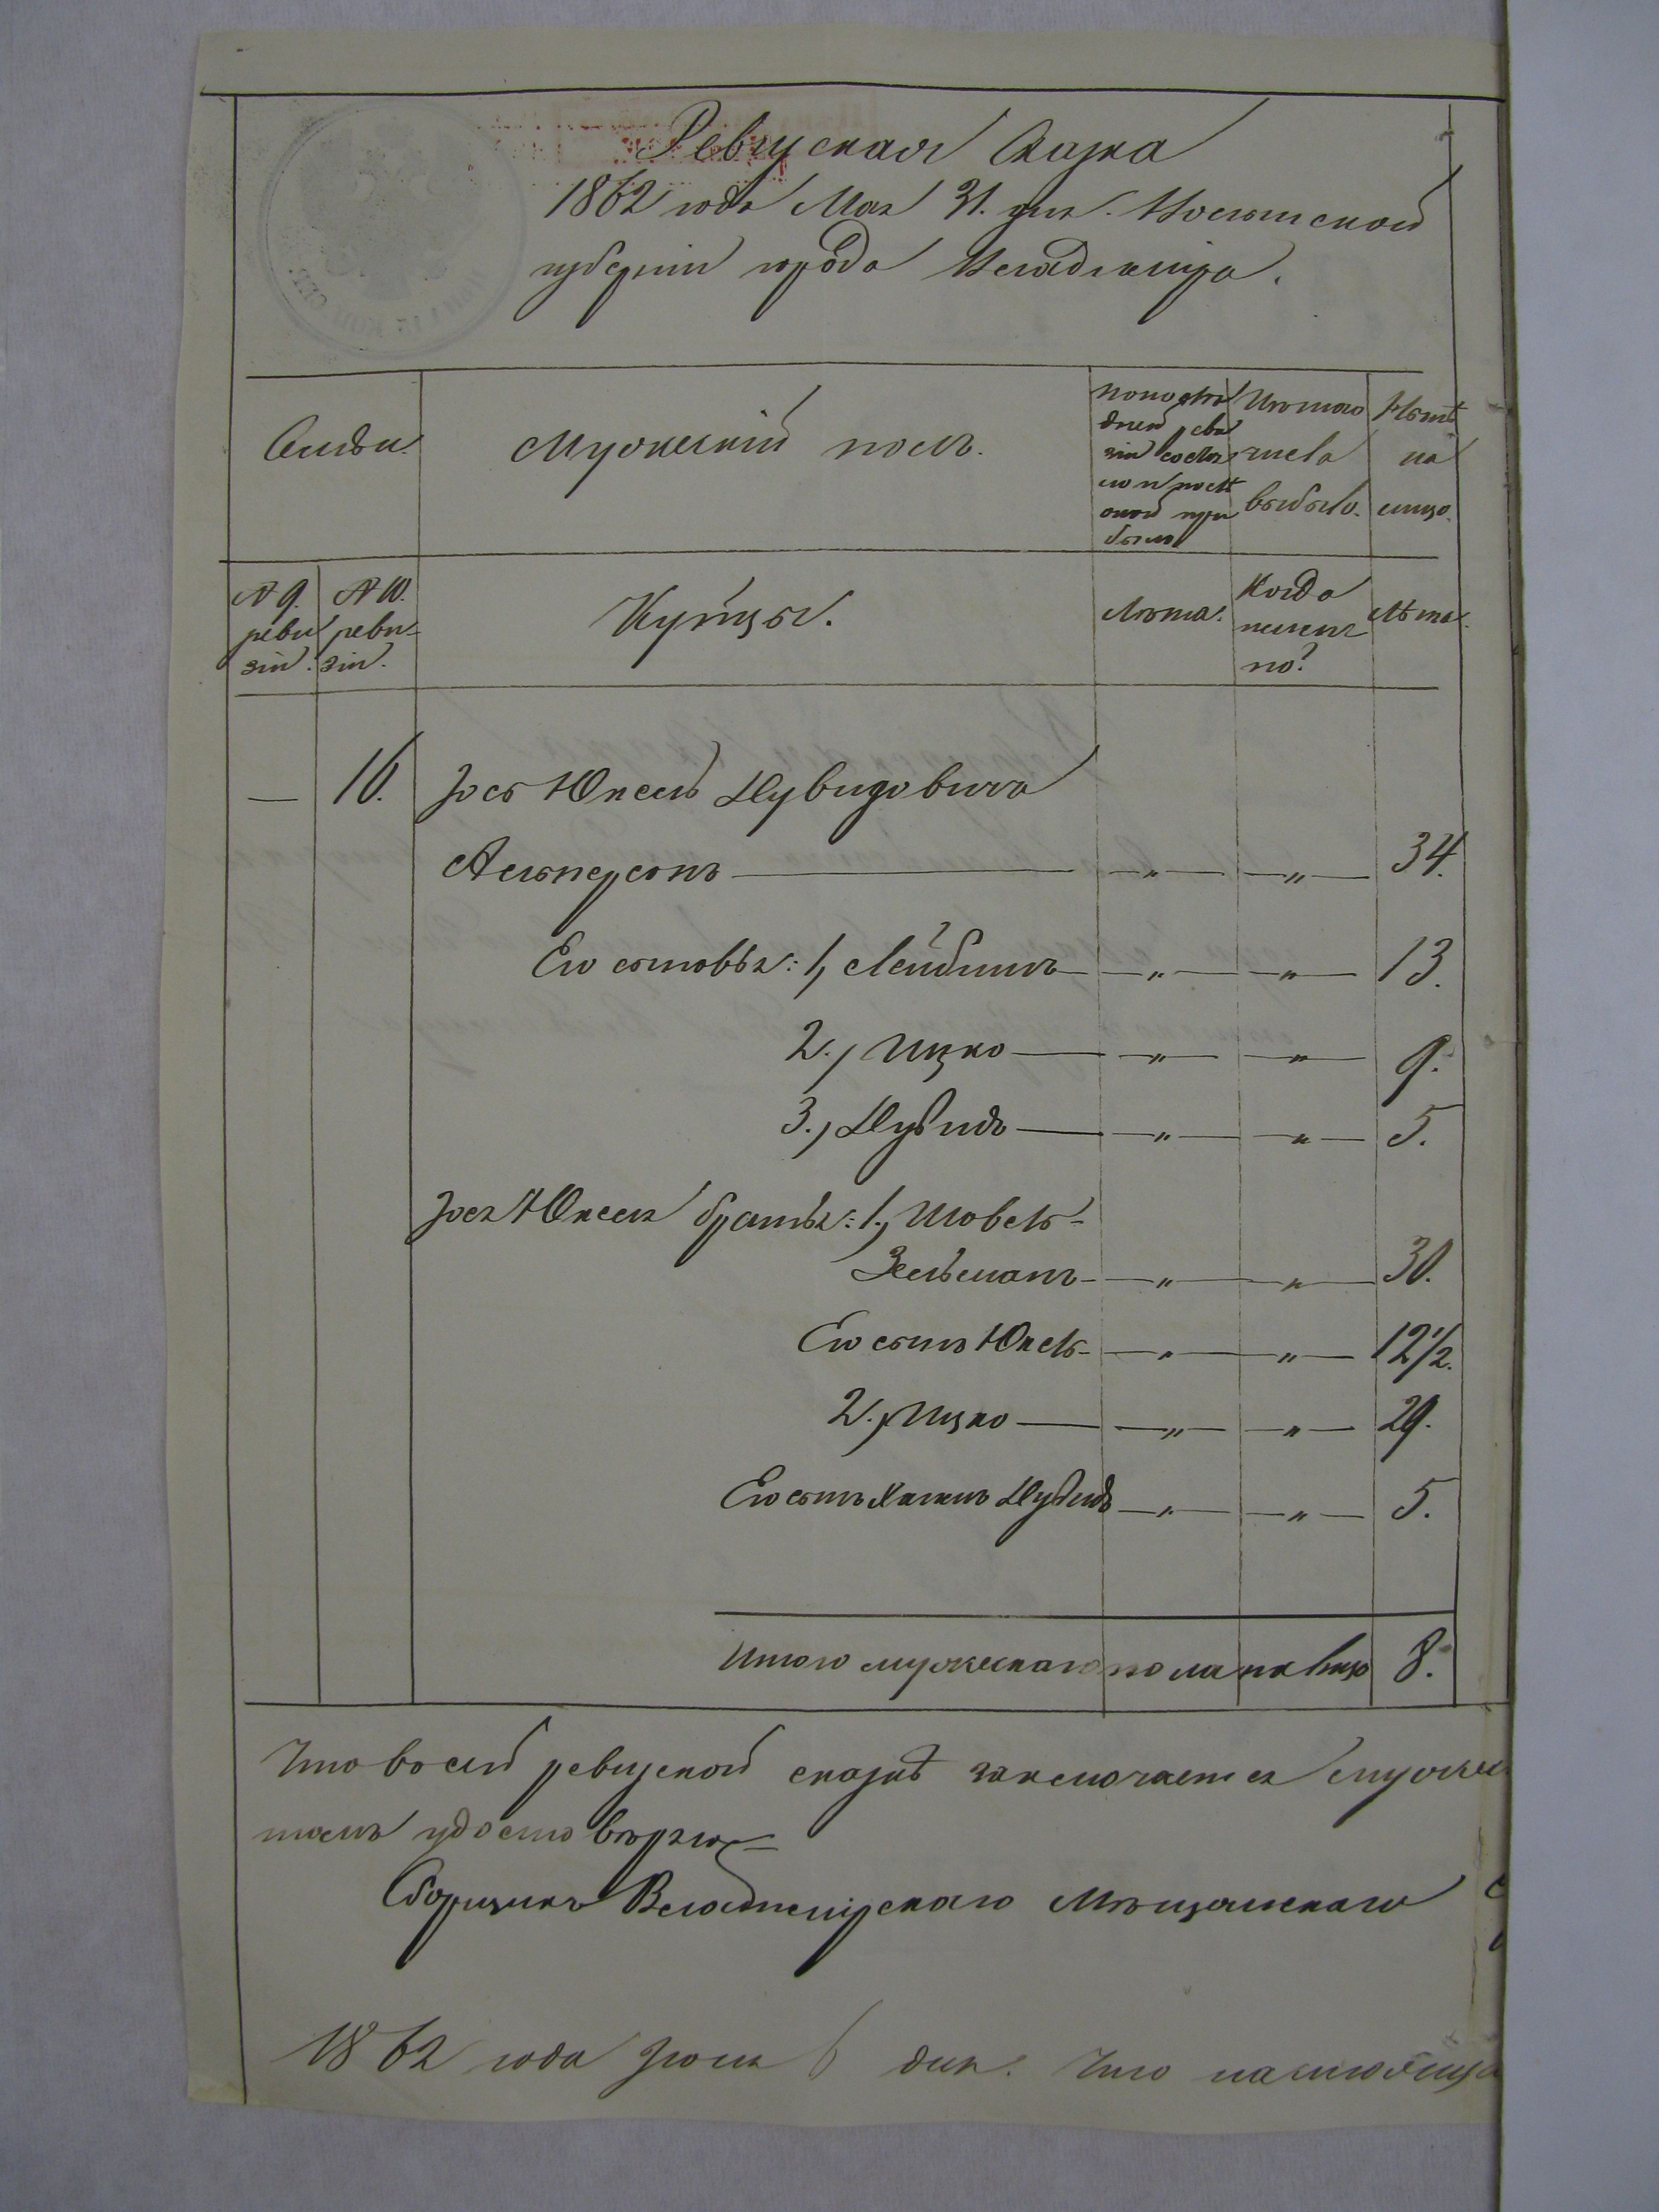 Ревизская Сказка
1862 года Мая 31. дня. Волынской
губерніи города Владиміра.
Семьи.
Мужескій полъ.
По послѣ
дней реви
зіи состоя
ло и послѣ
оной при
было
Изъ того
числа
выбыло.
Нынѣ
на
лицо.
№ 9.
реви
зіи.
№ 10.
реви-
зіи.
Купцы.
Лѣта.
Когда
имен
но?
Лѣта.
— 16. Іось Юкель Дувидовичъ
Альперсонъ — „ — „ — 34.
Его сыновья: 1, Лейбишъ — „ — „ — 13.
2., Ицко — „ — „ — 9.
3., Дувидъ — „ — „ — 5.
Іося Юкеля братья: 1., Шовель-
Зельманъ — „ — „ — 30.
Его сынъ Юкель — „ — „ — 12½.
2., Ицко — „ — „ — 29.
Его сынъ Хаимъ Дувидъ — „ — „ — 5.
Итого мужескаго пола на лицо 8.
Что въ сей ревизской сказкѣ заключается мужеск
томъ удостовѣряю
Сборщикъ Владимірскаго Мѣщанскаго
1862 года Іюня 6 дня. Что настоящая